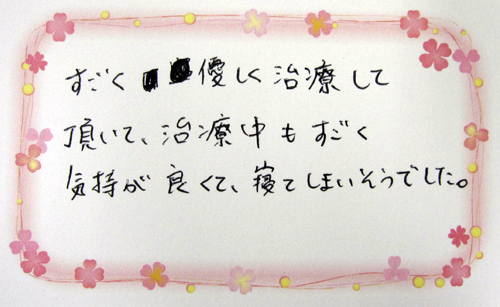 すごく優しく治療して
頂いて、治療中もすごく
気持が良くて、寝てしまいそうでした。